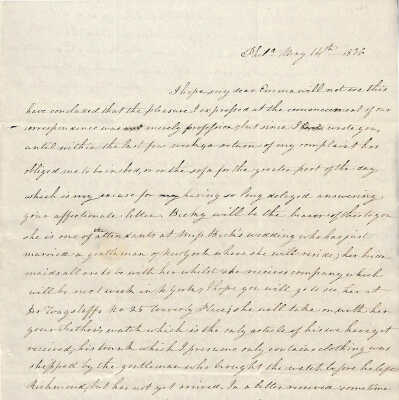 Phila May 14th 1836
I hope my dear Emma will not ere this
have concluded that the pleasure I expressed at the commencement of our
correspondence was merely profession, but since I wrote you
until within the last few weeks a return of my complaint has
obliged me to be in bed, or on the sofa for the greater part of the day
which is my excuse for my having so long delayed answering
your affectionate letter. Becky will be the bearer of this to you
she is one of the attendants at Miss wedding who has just
married a gentleman of New York where she will reside, her brides
maids all are to be with her whilst she receives company which
will be next week in N York, I hope you will go to see her at
Dr Wagstaff's No 25 Waverly Place, she will take on with her
your Brother's watch which is the only article of his we have yet
received, his trunk which I presume only contains clothing was
shipped by the gentleman who brought the watch before he left
Richmond, but has not yet arrived. In a letter received sometime